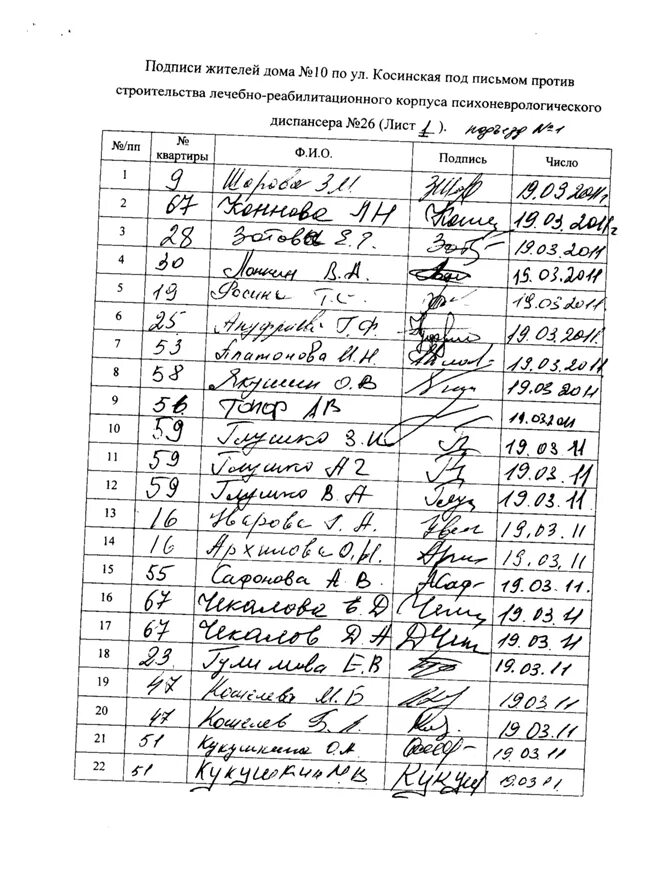 Подписи жителей дома №10 по ул. Косинская под письмом против
строительства лечебно-реабилитационного корпуса психоневрологического
диспансера №26 (Лист 1 ). подъезд №1
№/пп № квартиры Ф.И.О. Подпись Число
1 9 Шарова З.М. 19.03.2011г.
2 67 Коннова Л Н 19.03.2011г
3 28 Зотова Е.Я. 19.03.2011
4 30 В.А. 19.03.2011
5 19 Т.С. 19.03.2011
6 25 Ануфриева Т.Ф 19.03.2011г.
7 53 Платонова И.Н. 19.03.2011
8 58 Якушин О.В 19.03 2011
9 56 Топор АВ 19.03.2011
10 59 Глушко З.И 19.03 11
11 59 Глушко А Г 19.03.11
12 59 Глушко В.А 19.03.11
13 16 Уварова А. 19.03.11
14 16 Архипова О.Н. 19.03.11
15 55 Сафонова А.В. 19.03.11.
16 67 Чекалова Е.Д 19.03.11
17 67 Чекалов Д.А 19.03.11
18 23 Гулимова Е.В 19.03.11
19 47 Кошелева М.Б 19 03 11
20 47 Кошелев Б. 19 03.11
21 51 Кукушкина О.А 19.03.11
22 51 Кукушкин 19.03 11